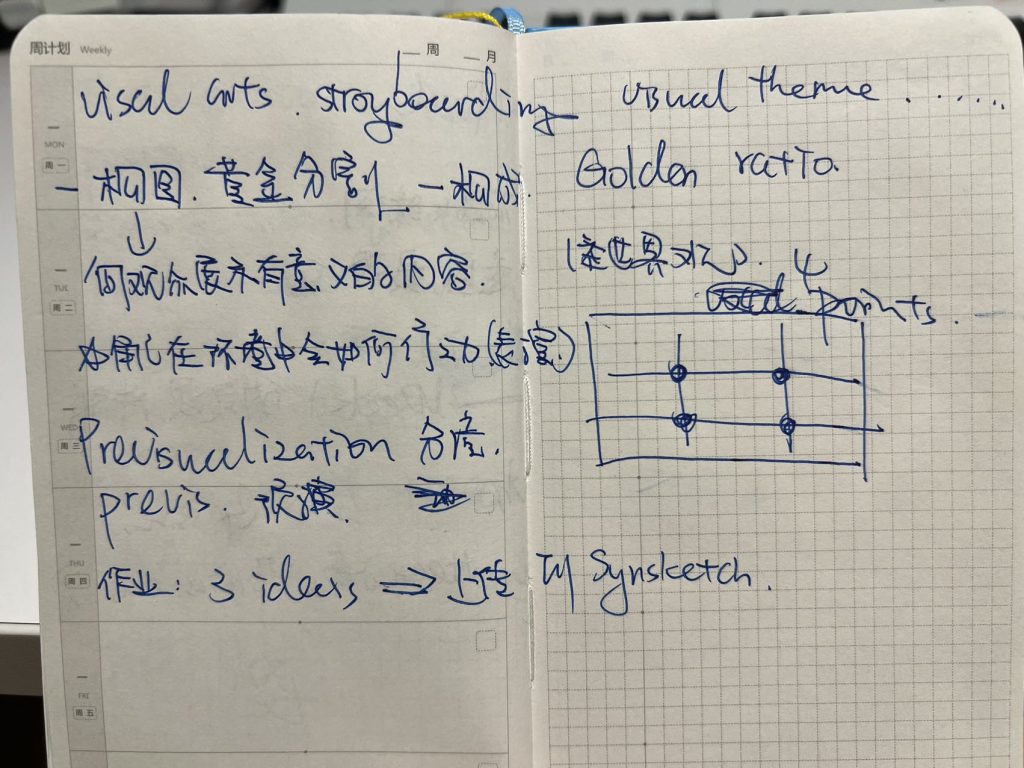 周计划 Weekly
周 月
viscal arts. stroyboarding visual theme . ......
一构图. 黄金分割 一构成. Golden ratio
4 points.
何观众展示有意义的内容.
如角色在环境中会如何行动(表演)
Previsualization 分度.
previs. 预演.
作业: 3 ideas ⇒ 上传 到 Synsketch.
MON
周一
TUE
周二
WED
周三
THU
周四
FRI
周五